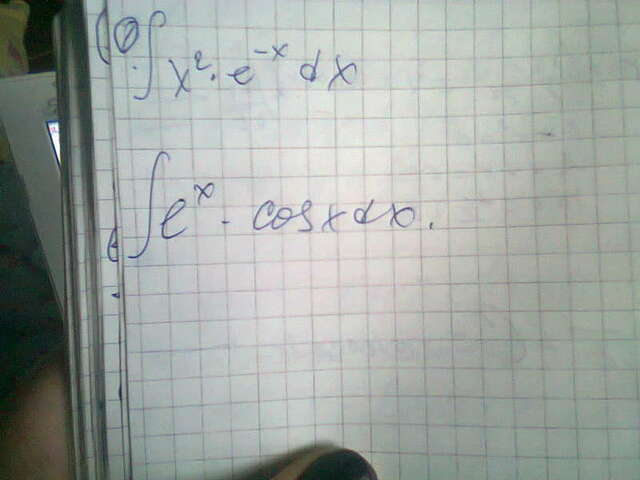 ∫ x². e⁻ˣ dx
∫ eˣ . cosxdx.